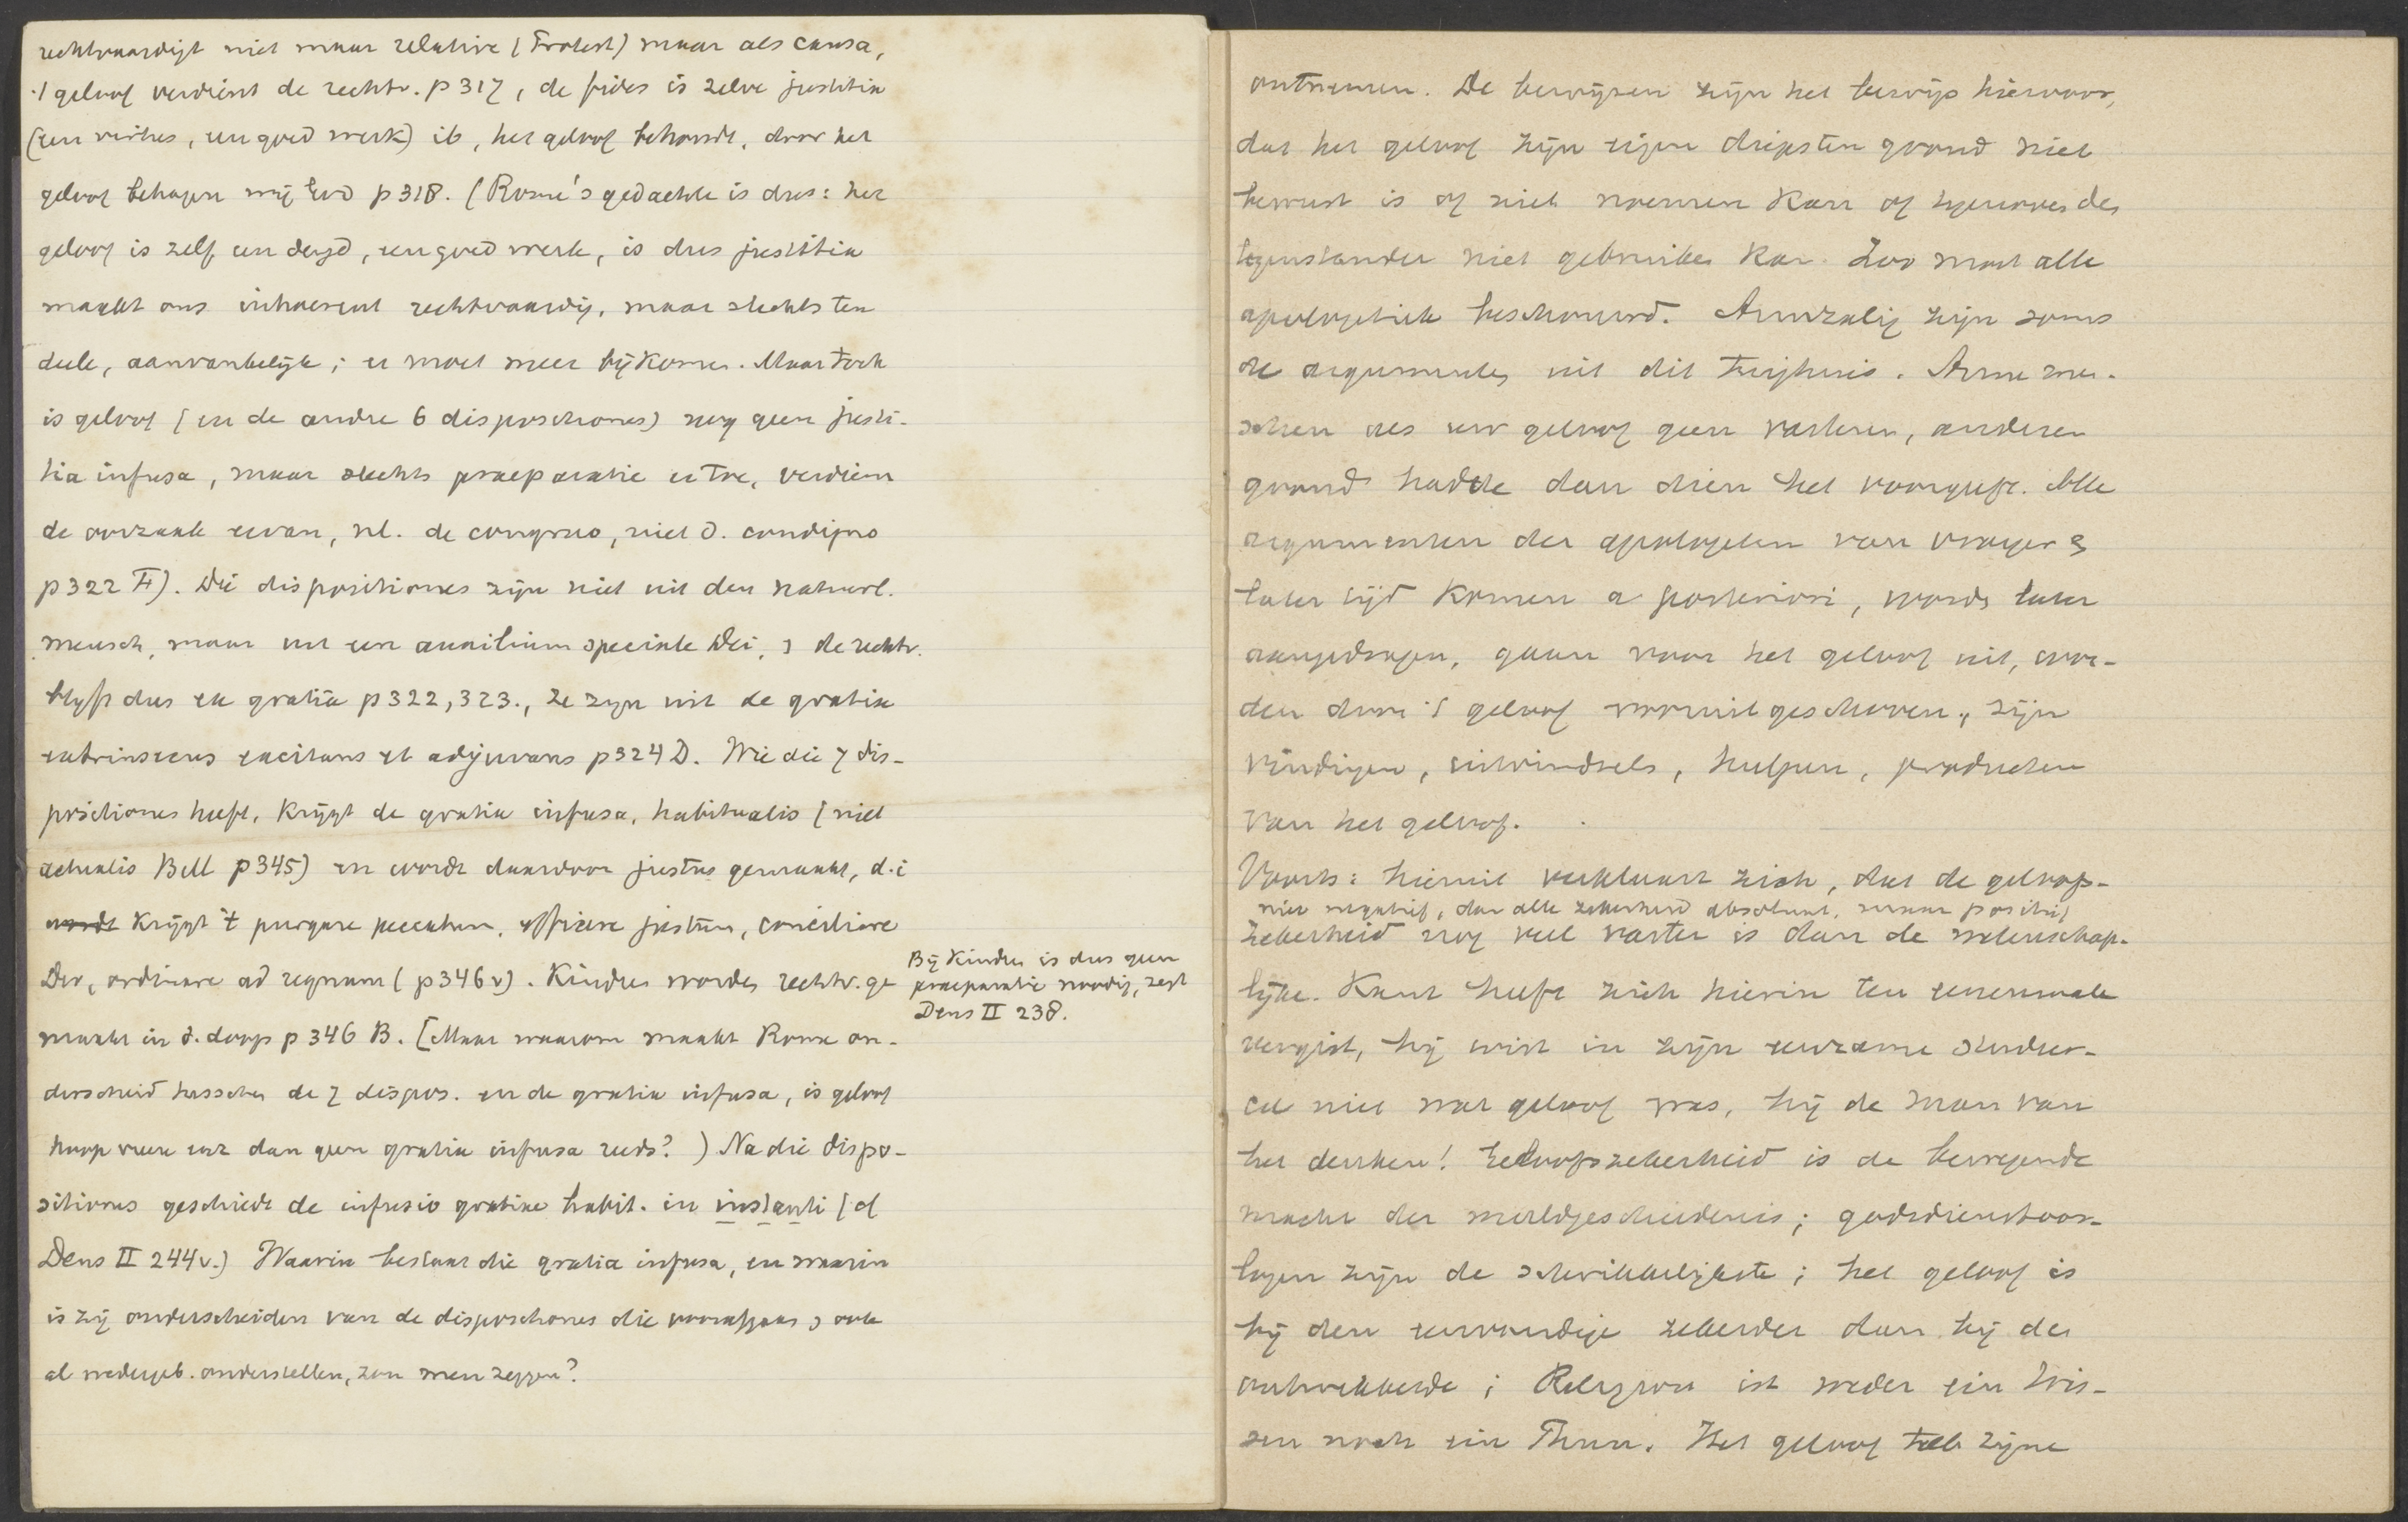 rechtvaardigt niet maar relative (Protest) maar als causa,
't geloof verdient de rechtv. p 317, de fides is zelve justitia
(een virtus, een goed werk) ib, het geloof behoudt, door het
geloof behagen wij God p 318. (Rome's gedachte is dus: het
geloof is zelf een deugd, een goed werk, is dus justitia
maakt ons inhaerent rechtvaardig, maar slechts ten
deele, aanvankelijk; er moet meer bijkomen. Maar toch
is geloof (en de andre 6 dispositiones) nog geen justi-
tia infusa, maar slechts praeparatie ertoe, verdient
de oorzaak ervan, nl. de congruo, niet d. condigno
p 322 F). Die dispositiones zijn niet uit den natuurl.
mensch, maar uit een auxilium speciale Dei, de rechtv.
blijft dus ex gratia p 322, 323., ze zijn uit de gratia
extrinsecus excitans et adjuvans p 324 D. Wie die 7 dis-
positiones heeft, krijgt de gratia infusa, habitualis (niet
actualis Bell p 345) en wordt daardoor justus gemaakt, d.i
wordt krijgt 't purgare peccatum, efficere justum, conciliare
Deo, ordinare ad regnum (p 346 v). Kindren worden rechtv. ge
maakt in d. doop p 346 B. [Maar waarom maakt Rome on-
derscheid tusschen de 7 dispos. en de gratia infusa, is geloof
hoop vrees enz dan geen gratia infusa reeds? ) Na die dispo-
sitiones geschiedt de infusio gratiae habit. in instanti (cf
Dens II 244 v.) Waarin bestaat die gratia infusa, en waarin
is zij onderscheiden van de dispositiones die voorafgaan ook
al wedergeb. onderstellen, zou men zeggen?
Bij kindren is dus geen
praeparatie noodig, zegt
Dens II 238.
ontnemen. De bewijzen zijn het bewijs hiervoor,
dat het geloof zijn eigen diepsten grond niet
bewust is of niet noemen kan of tegenover des
tegenstander niet gebruiken kan. Zoo moet alle
apologetiek beschouwd. Armzalig zijn soms
de argumenten uit dit tuighuis. Arme men-
schen als uw geloof geen vasteren, anderen
grond hadde dan dien het voorgeeft. Alle
argumenten der apologeten van vroeger &
later tijd komen a posteriori, worden later
aangedragen, gaan van het geloof uit, wor-
den door 't geloof vooruitgeschoven, zijn
vindingen, uitvindsels, hulpen, producten
van het geloof.
Voorts: hieruit verklaart zich, dat de geloofs-
niet negatief, dan alle zekerheid absoluut, maar positief
zekerheid nog veel vaster is dan de wetenschap-
lijke. Kant heeft zich hierin ten eenenmale
vergist, hij wist in zijn eenzame studeer-
cel niet wat geloof was, hij de man van
het denken! Geloofszekerheid is de bewegende
macht der wereldgeschiedenis; godsdienstoor-
logen zijn de schrikkelijkste; het geloof is
bij den eenvoudige zekerder dan bij de
ontwikkelde; Religion ist weder ein Wis-
sen noch ein Thun. Het geloof heeft zijne